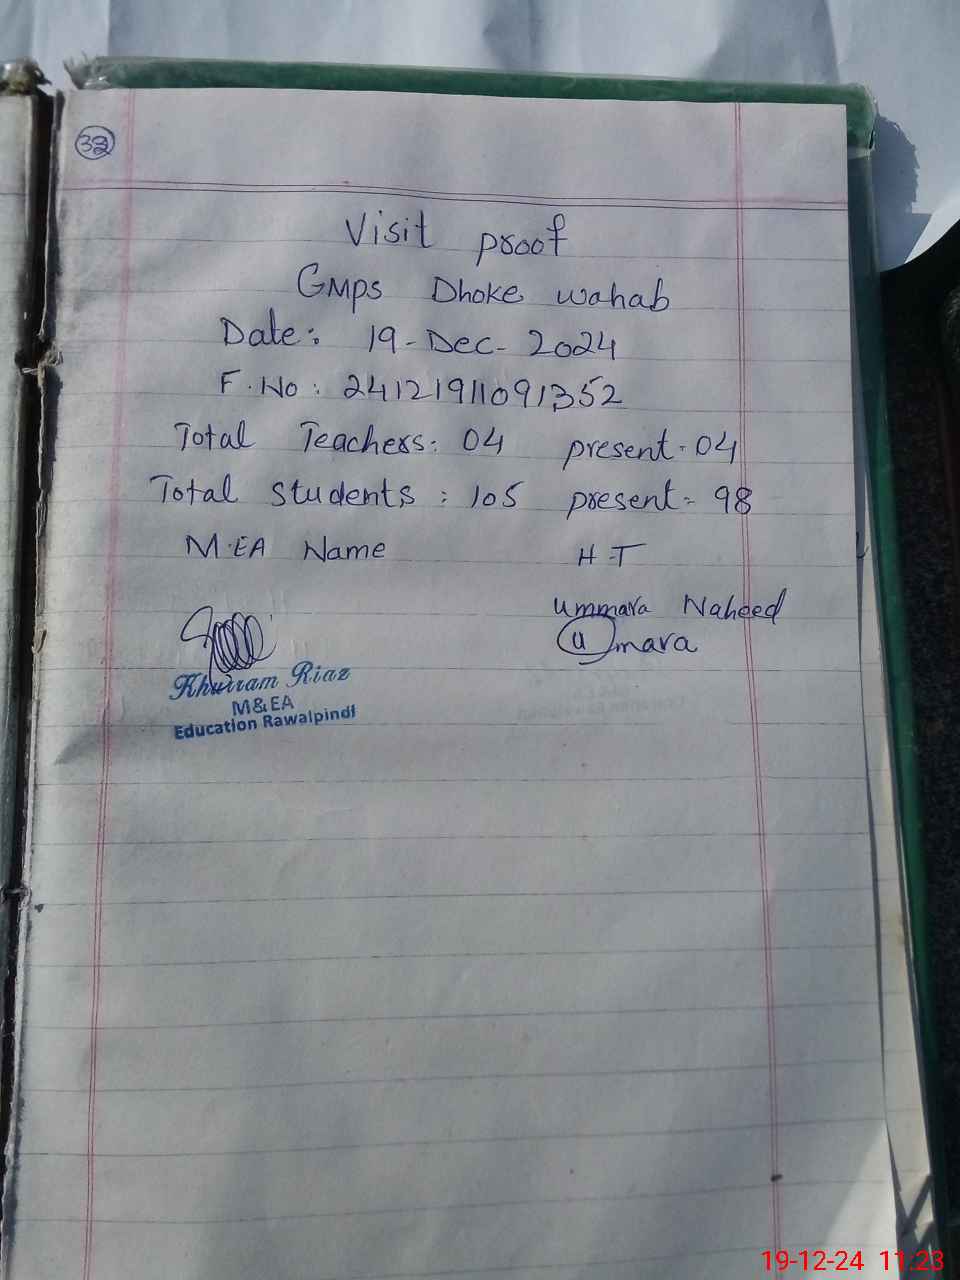 Visit proof
GMPS Dhoke wahab
Date: 19-Dec-2024
F.No: 24121911091352
Total Teachers: 04 present-04
Total students: 105 present-98
M.EA Name H-T
Ummara Naheed
Umara
Khurram Riaz
M&EA
Education Rawalpindi
19-12-24 11:23